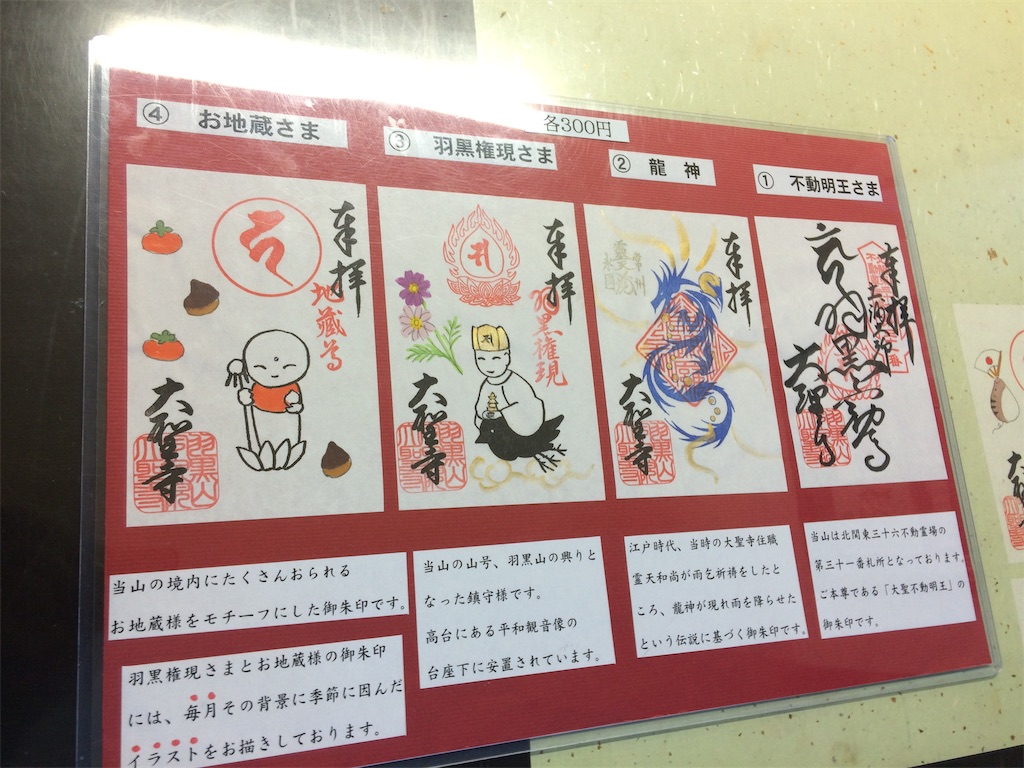 各300円
① 不動明王さま
② 龍神
③ 羽黒権現さま
④ お地蔵さま
奉拝
大聖寺
奉拝
大聖寺
奉拝
羽黒権現
大聖寺
羽黒山
奉拝
地蔵尊
大聖寺
羽黒山
当山は北関東三十六不動霊場の
第三十一番札所となっております。
ご本尊である「大聖不動明王」の
御朱印です。
江戸時代、当時の大聖寺住職
霊天和尚が雨乞祈祷をしたと
ころ、龍神が現れ雨を降らせた
という伝説に基づく御朱印です。
当山の山号、羽黒山の興りと
なった鎮守様です。
高台にある平和観音像の
台座下に安置されています。
当山の境内にたくさんおられる
お地蔵様をモチーフにした御朱印です。
羽黒権現さまとお地蔵様の御朱印
には、毎月その背景に季節に因んだ
イラストをお描きしております。